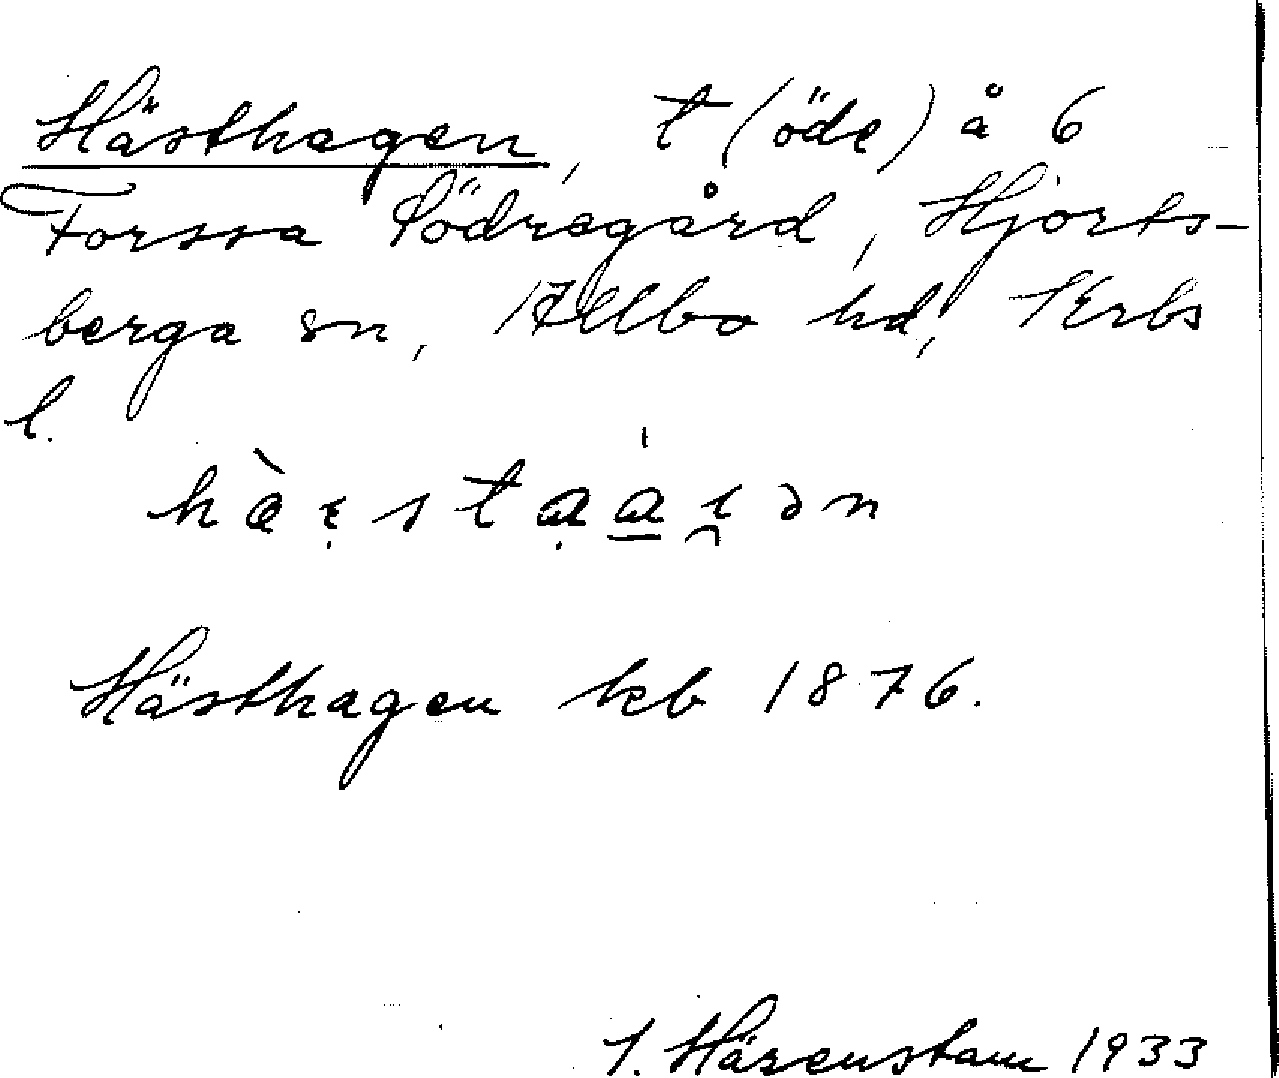 Hästhagen, t (öde) å 6
Forssa Södregård, Hjorts-
berga sn, Allbo hd, Krbs
l.
Hästhagen kb 1876.
Härenstam 1933